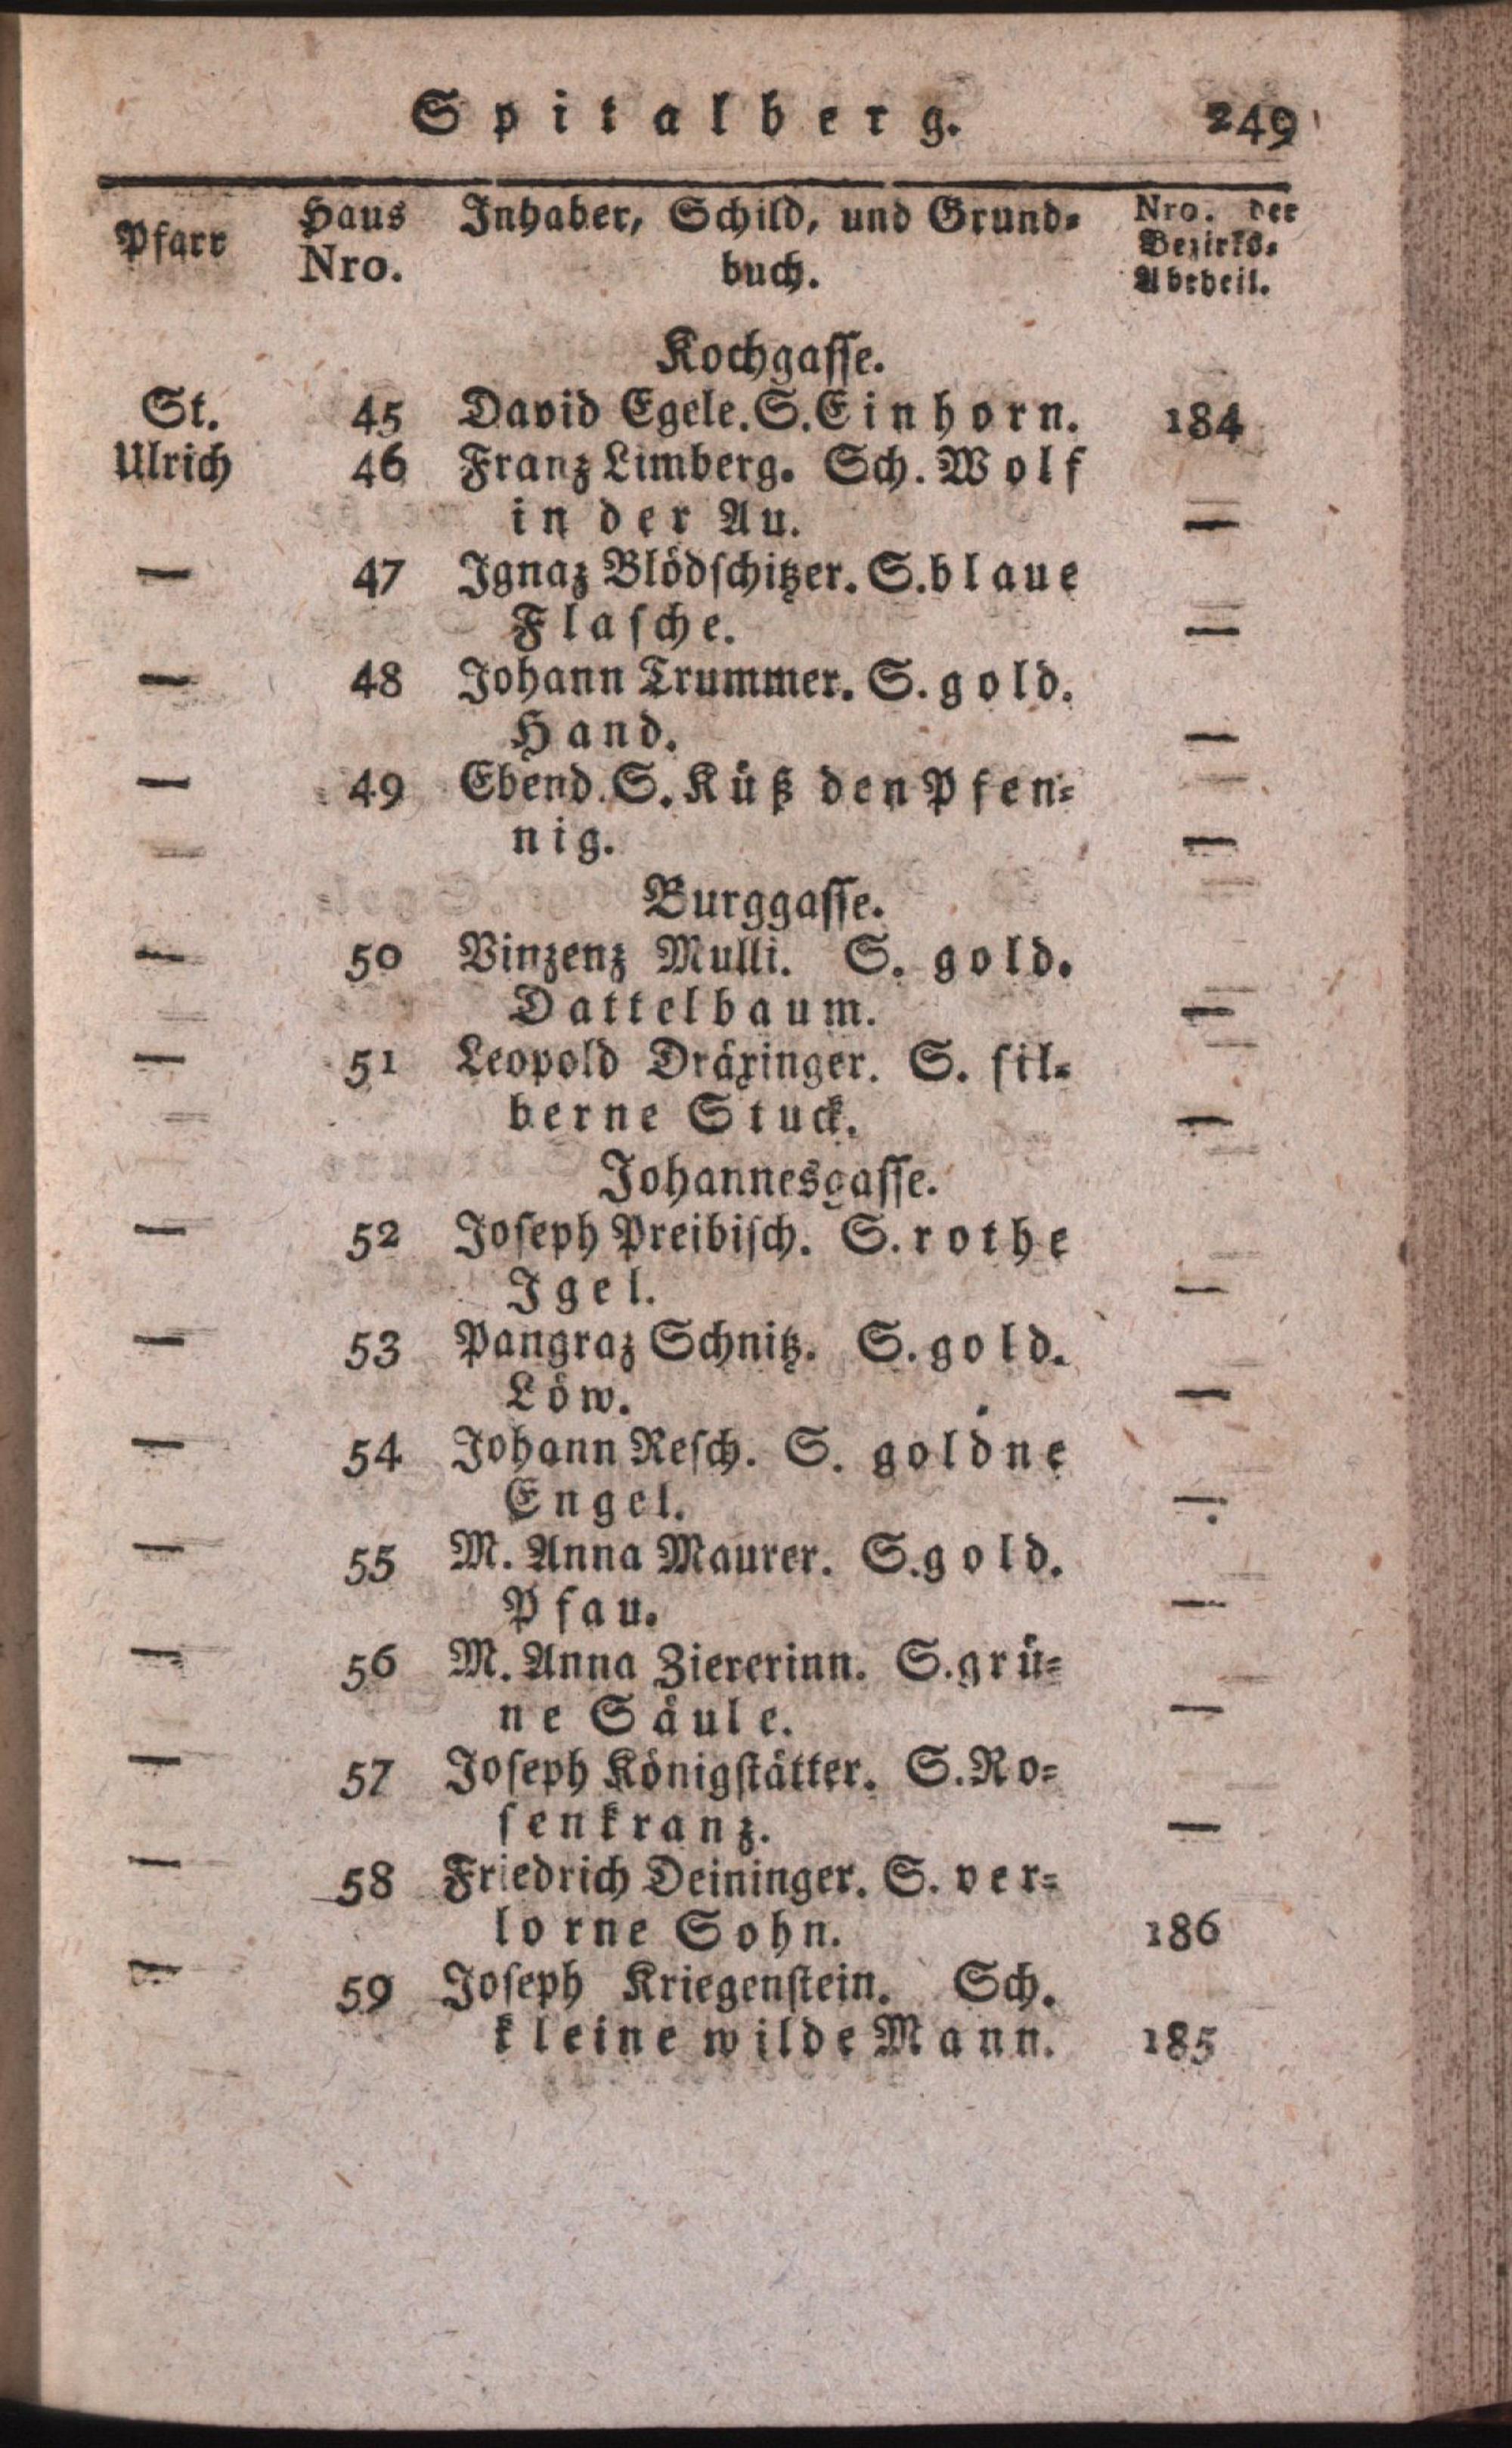 Spitalberg. 249
Pfarr Haus Nro. Inhaber, Schild, und Grund- buch. Nro. der Bezirks- Abtheil.
Kochgasse.
St. 45 David Egele. S. Einhorn. 184
Ulrich 46 Franz Limberg. Sch. Wolf
in der Au. —
— 47 Ignaz Blödschitzer. S. blaue
Flasche. —
— 48 Johann Trummer. S. gold.
Hand. —
— 49 Ebend. S. Küß den Pfen-
nig. —
Burggasse.
— 50 Vinzenz Mulli. S. gold.
Dattelbaum. —
— 51 Leopold Dräxinger. S. sil-
berne Stuck. —
Johannesgasse.
— 52 Joseph Preibisch. S. rothe
Igel. —
— 53 Pangraz Schnitz. S. gold.
Löw. —
— 54 Johann Resch. S. goldne
Engel. —
— 55 M. Anna Maurer. S. gold.
Pfau. —
— 56 M. Anna Ziererinn. S. grü-
ne Säule. —
— 57 Joseph Königstätter. S. Ro-
senkranz. —
— 58 Friedrich Deininger. S. ver-
lorne Sohn. 186
— 59 Joseph Kriegenstein. Sch.
kleine wilde Mann. 185